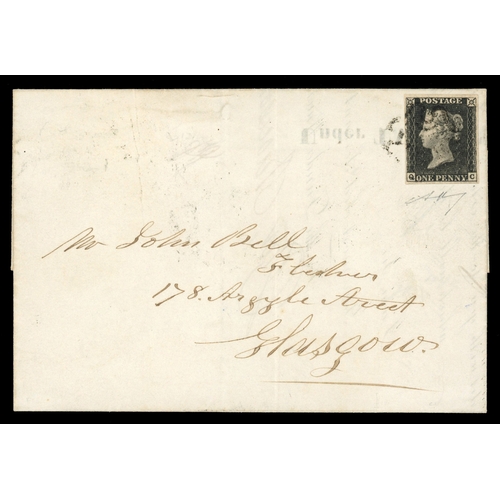 POSTAGE
ONE PENNY
Q C
Under
Mr John Bell
Flesher
178. Argyle Street
Glasgow.